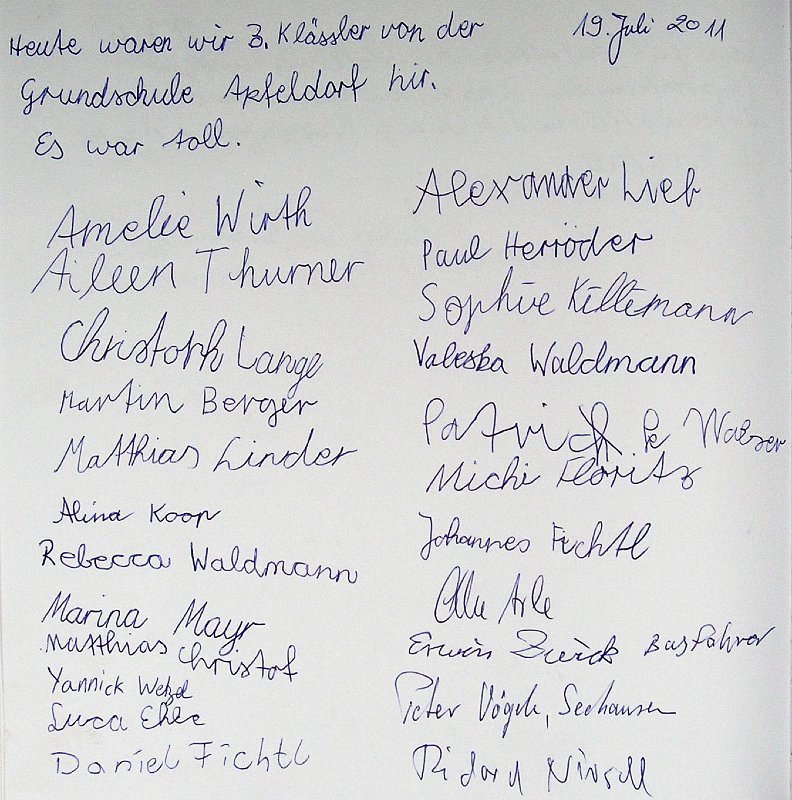 Heute waren wir 3. Klässler von der
19. Juli 2011
Grundschule Apfeldorf hir.
Es war toll.
Amelie Wirth
Aileen Thurner
Christoph Lange
Martin Berger
Matthias Linder
Alina Koop
Rebecca Waldmann
Marina Mayr
Matthias Christof
Yannick Wetzel
Luca Ehle
Daniel Fichtl
Alexander Lieb
Paul Herröder
Sophie Kiltimann
Valeska Waldmann
Patrick
Michi Floritz
Johannes Fichtl
Erwin Busfahrer
Peter Vögele, Seehausen